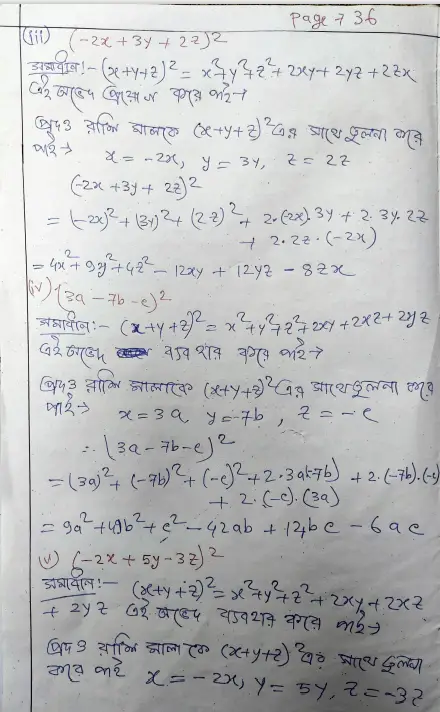 Page → 36
(iii) (-2x + 3y + 2z)²
সমাধান:- (x+y+z)² = x²+y²+z²+2xy+2yz+2zx
এই অভেদ প্রয়োগ করে পাই→
প্রদত্ত রাশি মালাকে (x+y+z)² এর সাথে তুলনা করে
পাই→ x = -2x, y = 3y, z = 2z
(-2x + 3y + 2z)²
= (-2x)² + (3y)² + (2z)² + 2·(-2x)·3y + 2·3y·2z
+ 2·2z·(-2x)
= 4x² + 9y² + 4z² - 12xy + 12yz - 8zx
(iv) (3a - 7b - c)²
সমাধান:- (x+y+z)² = x²+y²+z²+2xy+2xz+2yz
এই অভেদ ব্যবহার করে পাই→
প্রদত্ত রাশি মালাকে (x+y+z)² এর সাথে তুলনা করে
পাই→ x = 3a, y = -7b, z = -c
∴ (3a - 7b - c)²
= (3a)² + (-7b)² + (-c)² + 2·3a(-7b) + 2·(-7b)·(-c)
+ 2·(-c)·(3a)
= 9a² + 49b² + c² - 42ab + 14bc - 6ac
(v) (-2x + 5y - 3z)²
সমাধান:- (x+y+z)² = x²+y²+z² + 2xy + 2xz
+ 2yz এই অভেদ ব্যবহার করে পাই→
প্রদত্ত রাশি মালাকে (x+y+z)² এর সাথে তুলনা
করে পাই x = -2x, y = 5y, z = -3z